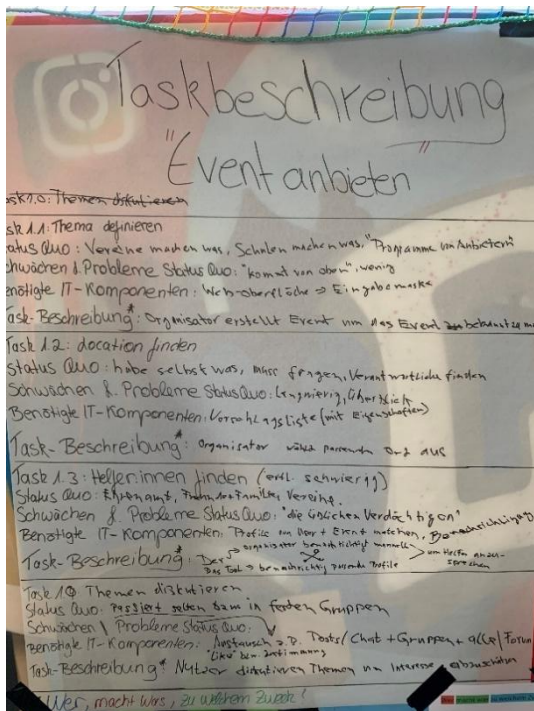 Taskbeschreibung
"Event anbieten"
sk 1.0: Themen diskutieren
sk 1.1: Thema definieren
atus Quo: Vereine machen was, Schulen machen was, "Programme von Anbietern"
hwächen & Probleme Status Quo: "kommt von oben", wenig
enötigte IT-Komponenten: Web-Oberfläche ⇒ Eingabemaske
Task-Beschreibung*: Organisator erstellt Event um das Event
Task 1.2: Location finden
Status Quo: habe selbst was, muss fragen, Verantwortliche finden
Schwächen & Probleme Status Quo: langwierig, Überblick
Benötigte IT-Komponenten: Vorschlagsliste (mit Eigenschaften)
Task-Beschreibung*: Organisator wählt passenden Ort aus
Task 1.3: Helfer:innen finden (evtl. schwierig)
Status Quo: Ehrenamt, Vereine.
Schwächen & Probleme Status Quo: "die üblichen Verdächtigen"
Benötigte IT-Komponenten: Profile von User + Event matchen, Benachrichtigung
Task-Beschreibung*: Der → Organisator benachrichtigt manuell
Das Tool → benachrichtigt passende Profile
um Helfer anzusprechen
Task 1.0 Themen diskutieren
Status Quo: Passiert selten bzw. in festen Gruppen
Schwächen \ Probleme Status Quo:
Benötigte IT-Komponenten: Austausch z.B. Posts/Chat + Gruppen + alle/Forum
"Like" bzw. Zustimmung
Task-Beschreibung*: Nutzer diskutieren Themen um Interesse abzuschätzen
Wer, macht was, zu welchem Zweck?